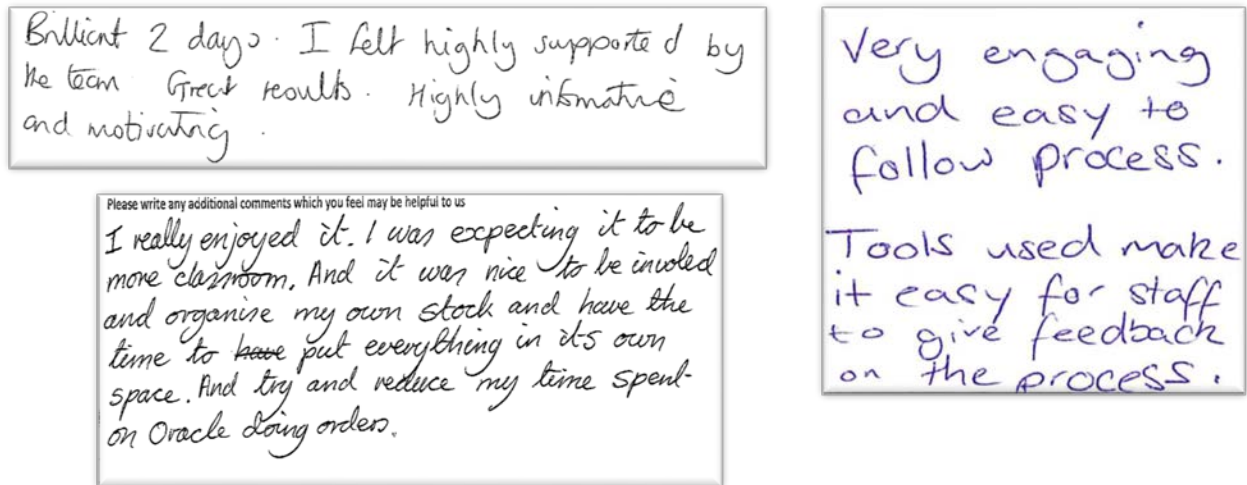 Brilliant 2 days. I felt highly supported by
the team Great results. Highly informative
and motivating.
Please write any additional comments which you feel may be helpful to us
I really enjoyed it. I was expecting it to be
more classroom. And it was nice to be involed
and organise my own stock and have the
time to have put everything in it's own
space. And try and reduce my time spent
on Oracle doing orders.
Very engaging
and easy to
follow process.
Tools used make
it easy for staff
to give feedback
on the process.